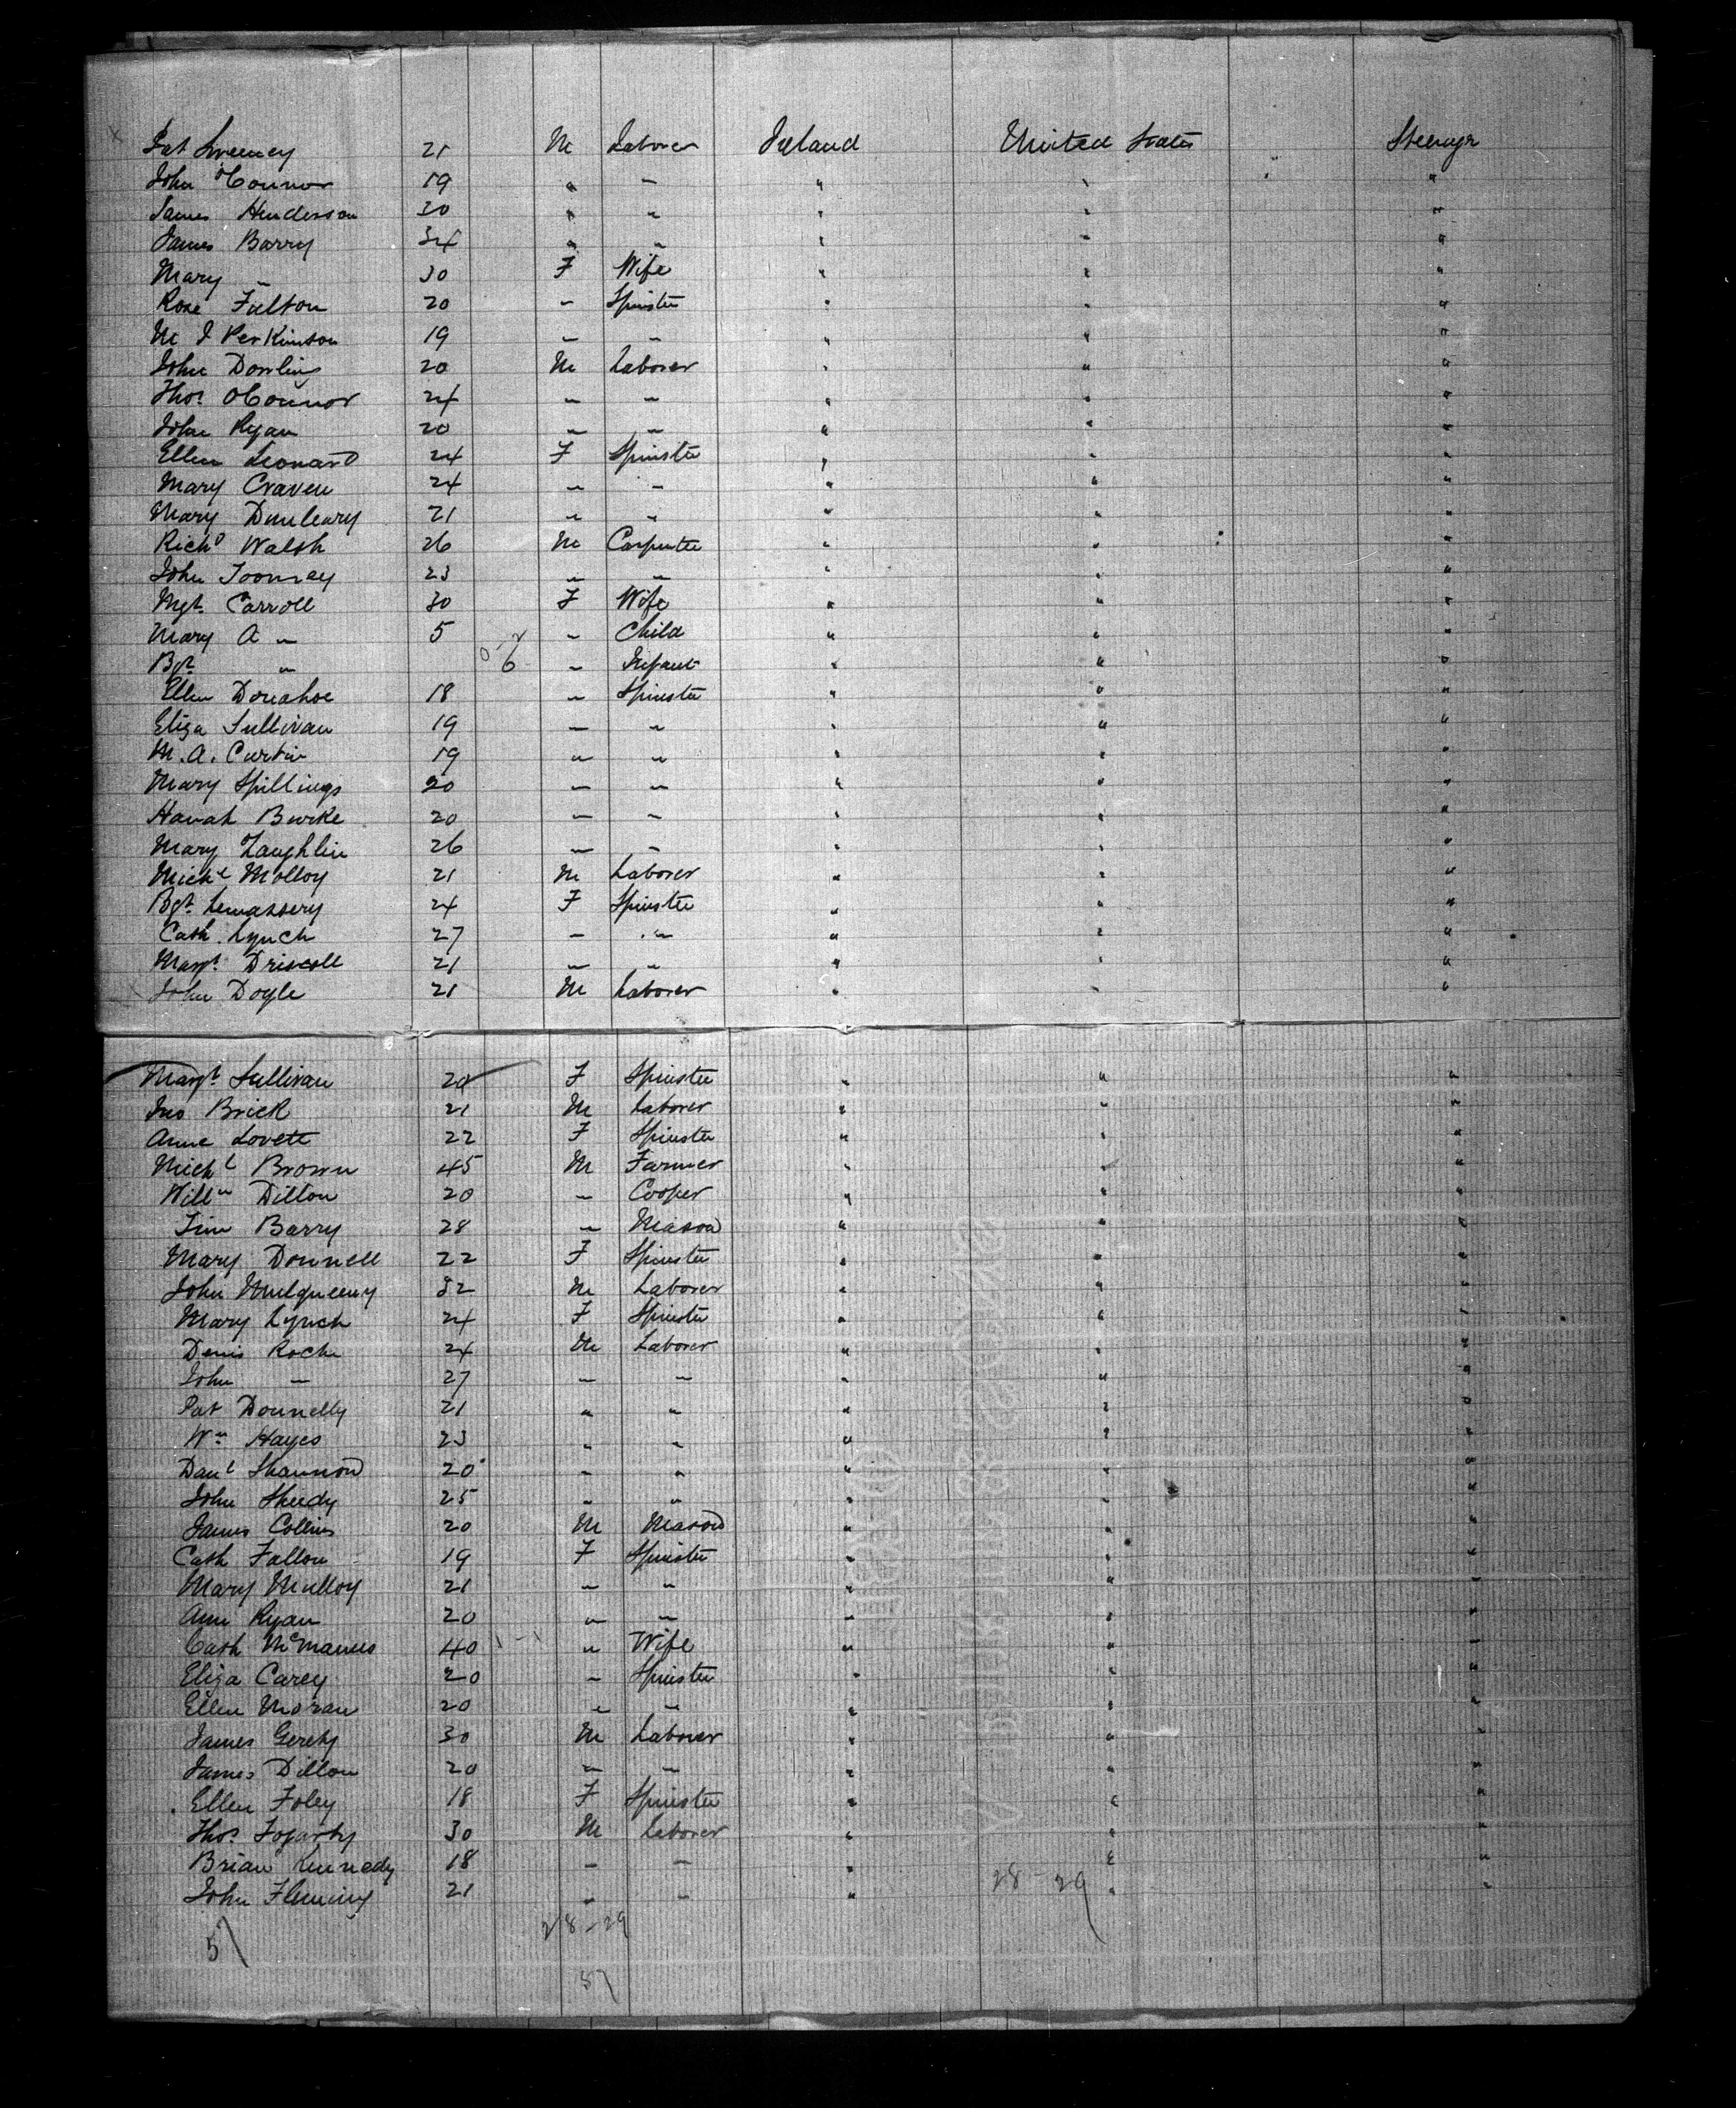 Pat Sweeney 21 M Laborer Ireland United States Steerage
John O'Connor 19 " " " " "
James Henderson 30 " " " " "
James Barry 34 " " " " "
Mary " 30 F Wife " " "
Rose Fulton 20 " Spinster " " "
M J Perkinson 19 " " " " "
John Dowling 20 M Laborer " " "
Thos. OConnor 24 " " " " "
John Ryan 20 " " " " "
Ellen Leonard 24 F Spinster " " "
Mary Craven 24 " " " " "
Mary Dunleary 21 " " " " "
Richd Walsh 26 M Carpenter " " "
John Toomey 23 " " " " "
Mgt. Carroll 30 F Wife " " "
Mary A " 5 " Child " " "
Bgt. " 6 " Infant " " "
Ellen Donahoe 18 " Spinster " " "
Eliza Sullivan 19 " " " " "
M. A. Curtin 19 " " " " "
Mary Spillings 20 " " " " "
Hanah Burke 20 " " " " "
Mary Laughlin 26 " " " " "
Michl Molloy 21 M Laborer " " "
Bgt. 24 F Spinster " " "
Cath. Lynch 27 " " " " "
Margt. Driscoll 21 " " " " "
John Doyle 21 M Laborer " " "
Margt. Sullivan 20 F Spinster " " "
Jno Brick 21 M Laborer " " "
Anne Lovett 22 F Spinster " " "
Michl Brown 45 M Farmer " " "
Willm Dillon 20 " Cooper " " "
Tim Barry 28 " Mason " " "
Mary Donnell 22 F Spinster " " "
John Mulqueeny 32 M Laborer " " "
Mary Lynch 24 F Spinster " " "
Denis Roche 24 M Laborer " " "
John " 27 " " " " "
Pat Donnelly 21 " " " " "
Wm Hayes 23 " " " " "
Danl Shannon 20 " " " " "
John Sheedy 25 " " " " "
James Collins 20 M Mason " " "
Cath Fallon 19 F Spinster " " "
Mary Mulloy 21 " " " " "
Ann Ryan 20 " " " " "
Cath McManus 40 " Wife " " "
Eliza Carey 20 " Spinster " " "
Ellen Moran 20 " " " " "
James Gerety 30 M Laborer " " "
James Dillon 20 " " " " "
Ellen Foley 18 F Spinster " " "
Thos. Fogarty 30 M Laborer " " "
Brian Kennedy 18 " " " " "
John Fleming 21 " " " 28-29 " "
57 28-29
57